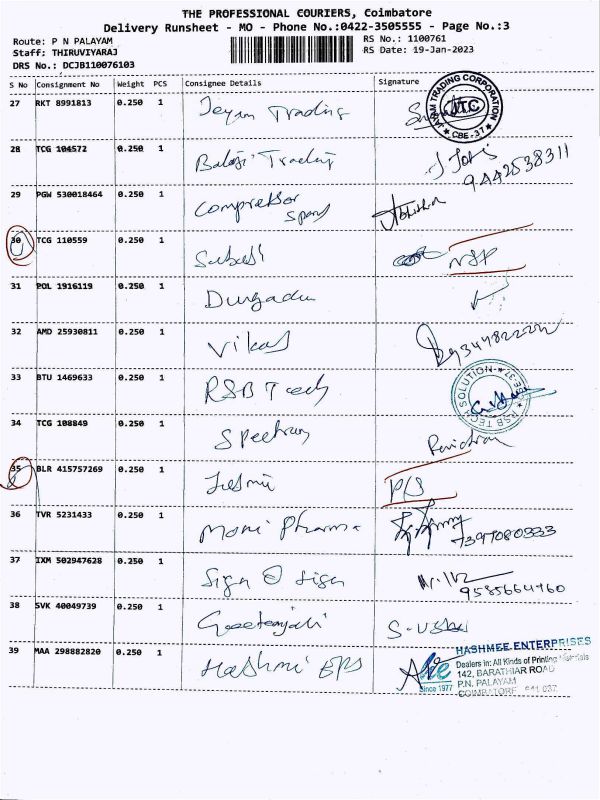 THE PROFESSIONAL COURIERS, Coimbatore
Delivery Runsheet - MO - Phone No.:0422-3505555 - Page No.:3
Route: P N PALAYAM RS No.: 1100761
Staff: THIRUVIYARAJ RS Date: 19-Jan-2023
DRS No.: DCJB110076103
S No Consignment No Weight PCS Consignee Details Signature
27 RKT 8991813 0.250 1 Jeyam Trading
JAYAM TRADING CORPORATION
JTC
★ CBE-37 ★
28 TCG 104572 0.250 1 Balaji Trading
9442538311
29 PGW 530018464 0.250 1 Compressor
30 TCG 110559 0.250 1 Subash NSP
31 POL 1916119 0.250 1
32 AMD 25930811 0.250 1 Vikas
33 BTU 1469633 0.250 1 RSB Tech
RSB TECH SOLUTION
34 TCG 108849 0.250 1 Spectrum
35 BLR 415757269 0.250 1
36 TVR 5231433 0.250 1 Moni Pharma
7397080333
37 IXM 502947628 0.250 1 Sign O Sign
9585664460
38 SVK 40049739 0.250 1 Geetanjali
39 MAA 298882820 0.250 1 Hashmi EPS
HASHMEE ENTERPRISES
Dealers in: All Kinds of Printing Materials
142, BARATHIAR ROAD
Since 1977 P.N. PALAYAM
COIMBATORE - 641 037.